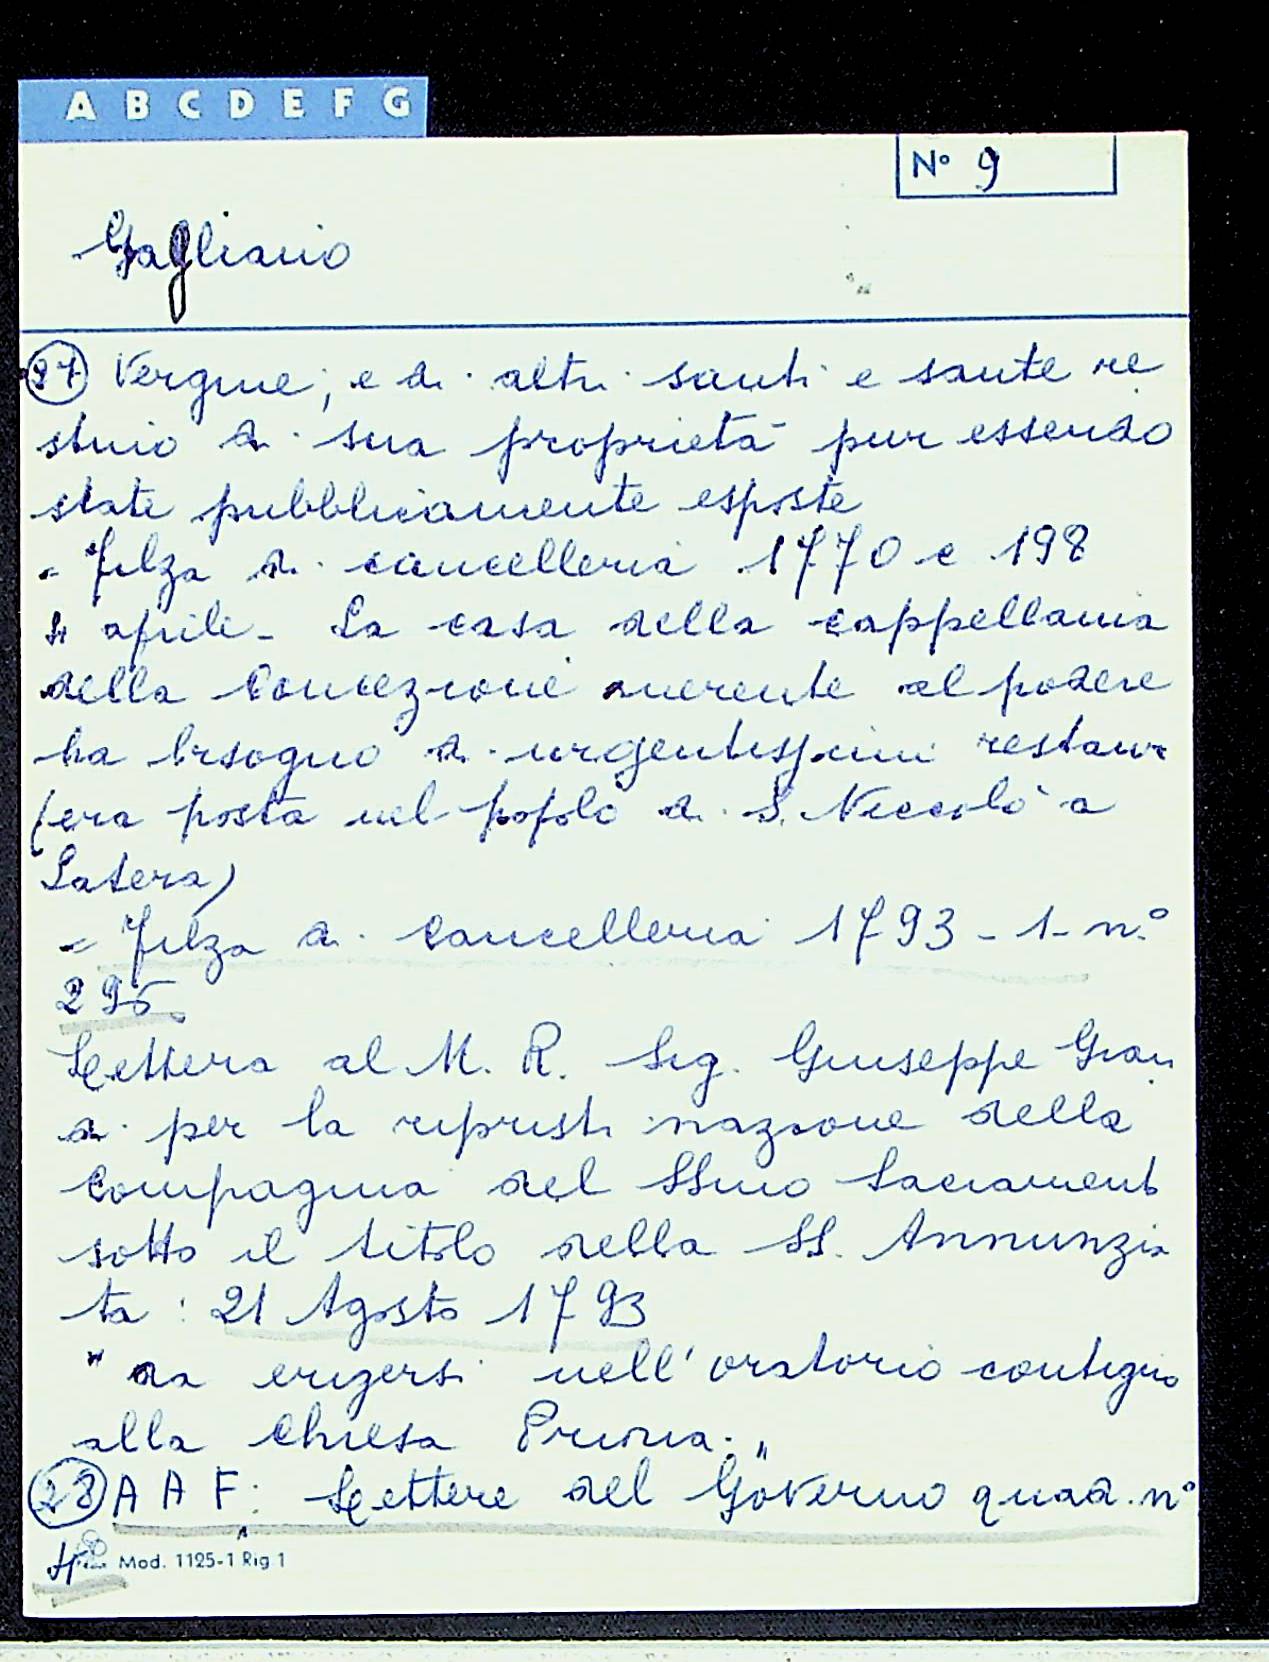 A B C D E F G
N° 9
Gagliano
27 Vergine, e di altri santi e sante re
stino di sua proprietà pur essendo
state pubblicamente esposte
= Filza di cancelleria 1770 e 198
4 aprile - La casa della cappellania
della Concezione inerente al podere
ha bisogno di urgentissimi restauri
(era posta nel popolo di S. Niccolò a
Latera)
= Filza di Cancelleria 1793 - 1 - n°
295
Lettera al M. R. Sig. Giuseppe Gran
di per la ripristinazione della
Compagnia del SSmo Sacramento
sotto il titolo della SS. Annunzia
ta : 21 Agosto 1793
" da erigersi nell'oratorio contiguo
alla Chiesa Prioria. "
28 A A F : Lettere del Governo quad. n°
4 Mod. 1125-1 Rig 1